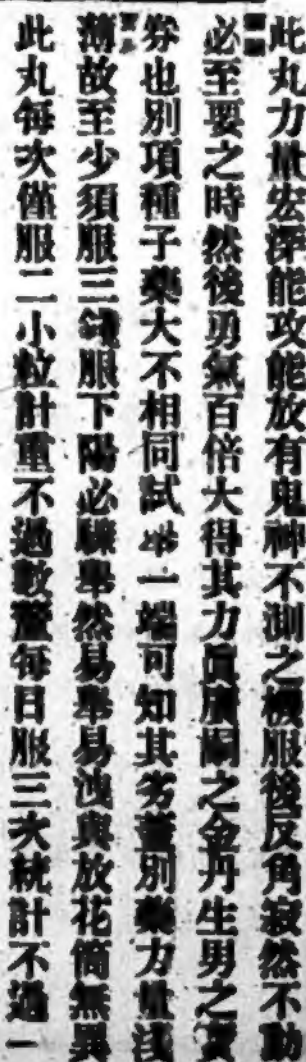 此丸力量宏深能攻能放有鬼神不測之機服後反角寂然不動
必至要之時然後勇氣百倍大得其力眞廣嗣之金丹生男之寳
券也別項種子藥大不相同試举一端可知其劣蓋別藥力量淺
薄故至少須服三錢服下陽必驟舉然易舉易洩與放花筒無異
此丸每次僅服二小粒計重不過數釐每日服三次統計不過一